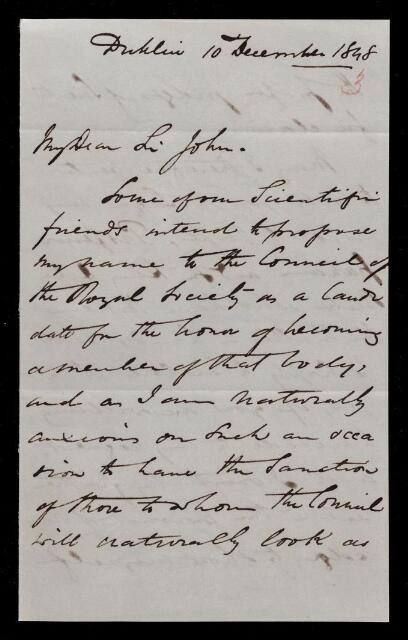 Dublin 10 December 1848
3
My Dear Sir John.
Some of our Scientific
friends intend to propose
my name to the Council of
the Royal Society as a Candi
date for the honor of becoming
a member of that body,
and as I am naturally
anxious on such an occa
sion to have the Sanction
of those to whom the Council
will naturally look as